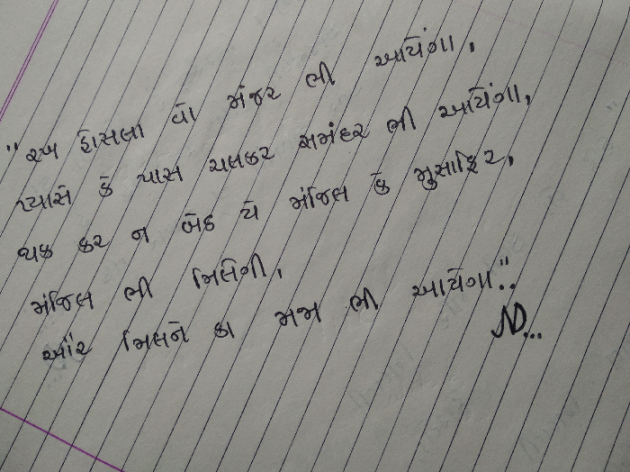 "રખ હોસલા વો મંજર ભી આયેંગા,
પ્યાસે કે પાસ ચલકર સમંદર ભી આયેંગા,
થક કર ન બેઠ યે મંજિલ કે મુસાફિર,
મંજિલ ભી મિલેગી,
ઓર મિલને કા મજા ભી આયેગા"..
ND...